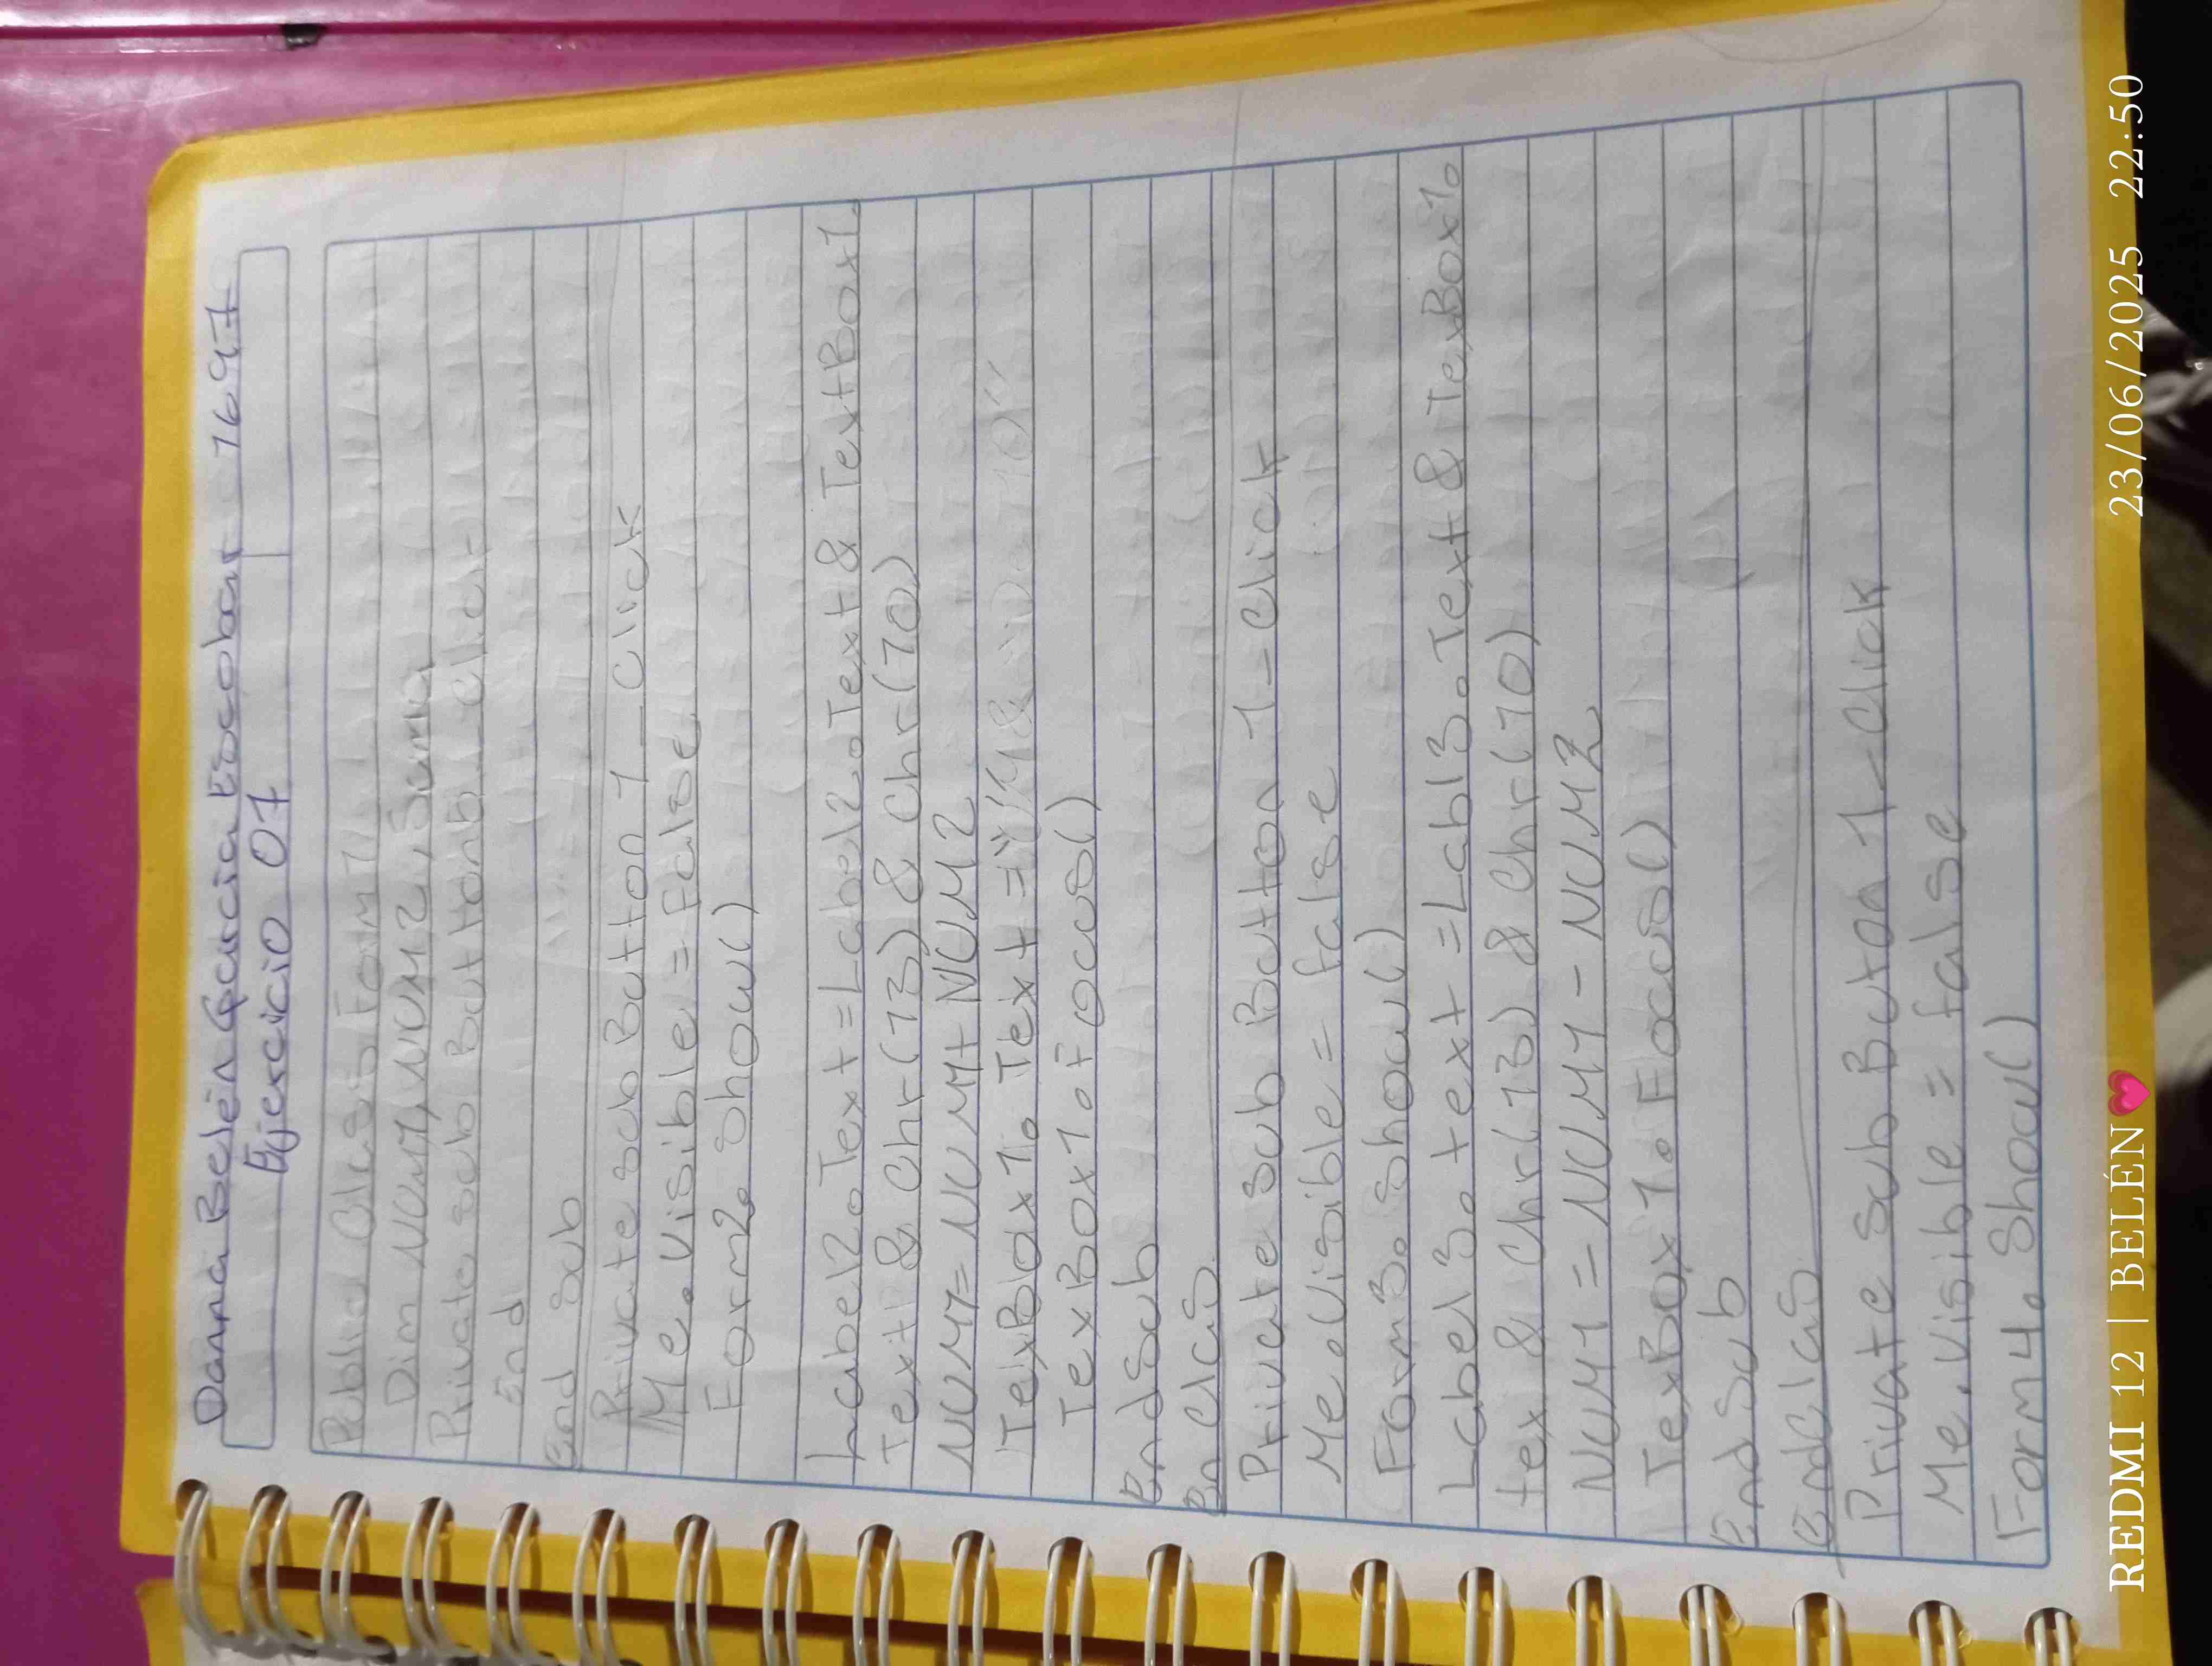 Danna Belén García Escobar 1697
Ejercicio 01
Public Class Form1
Dim NUM1, NUM2, Suma
Private sub Button5_Click
End
End Sub
Private sub Button 1_Click
Me.Visible = False
Form2.Show()
Label2.Text = Label2.Text & TextBox1.
Text & Chr(13) & Chr(10)
NUM1 = NUM1 + NUM2
TexBox1. Text =
TexBox1.Focus()
End Sub
En Clas
Private Sub Button 1_Click
Me.Visible = false
Form3.Show()
Label3.text = Labl3.Text & TexBox1.
tex & Chr(13) & Chr(10)
NUM1 = NUM1 - NUM2
TexBox1.Focus()
End Sub
End Clas
Private Sub Buton 1_Click
Me.Visible = false
Form4.Show()
REDMI 12 | BELÉN💗 23/06/2025 22:50